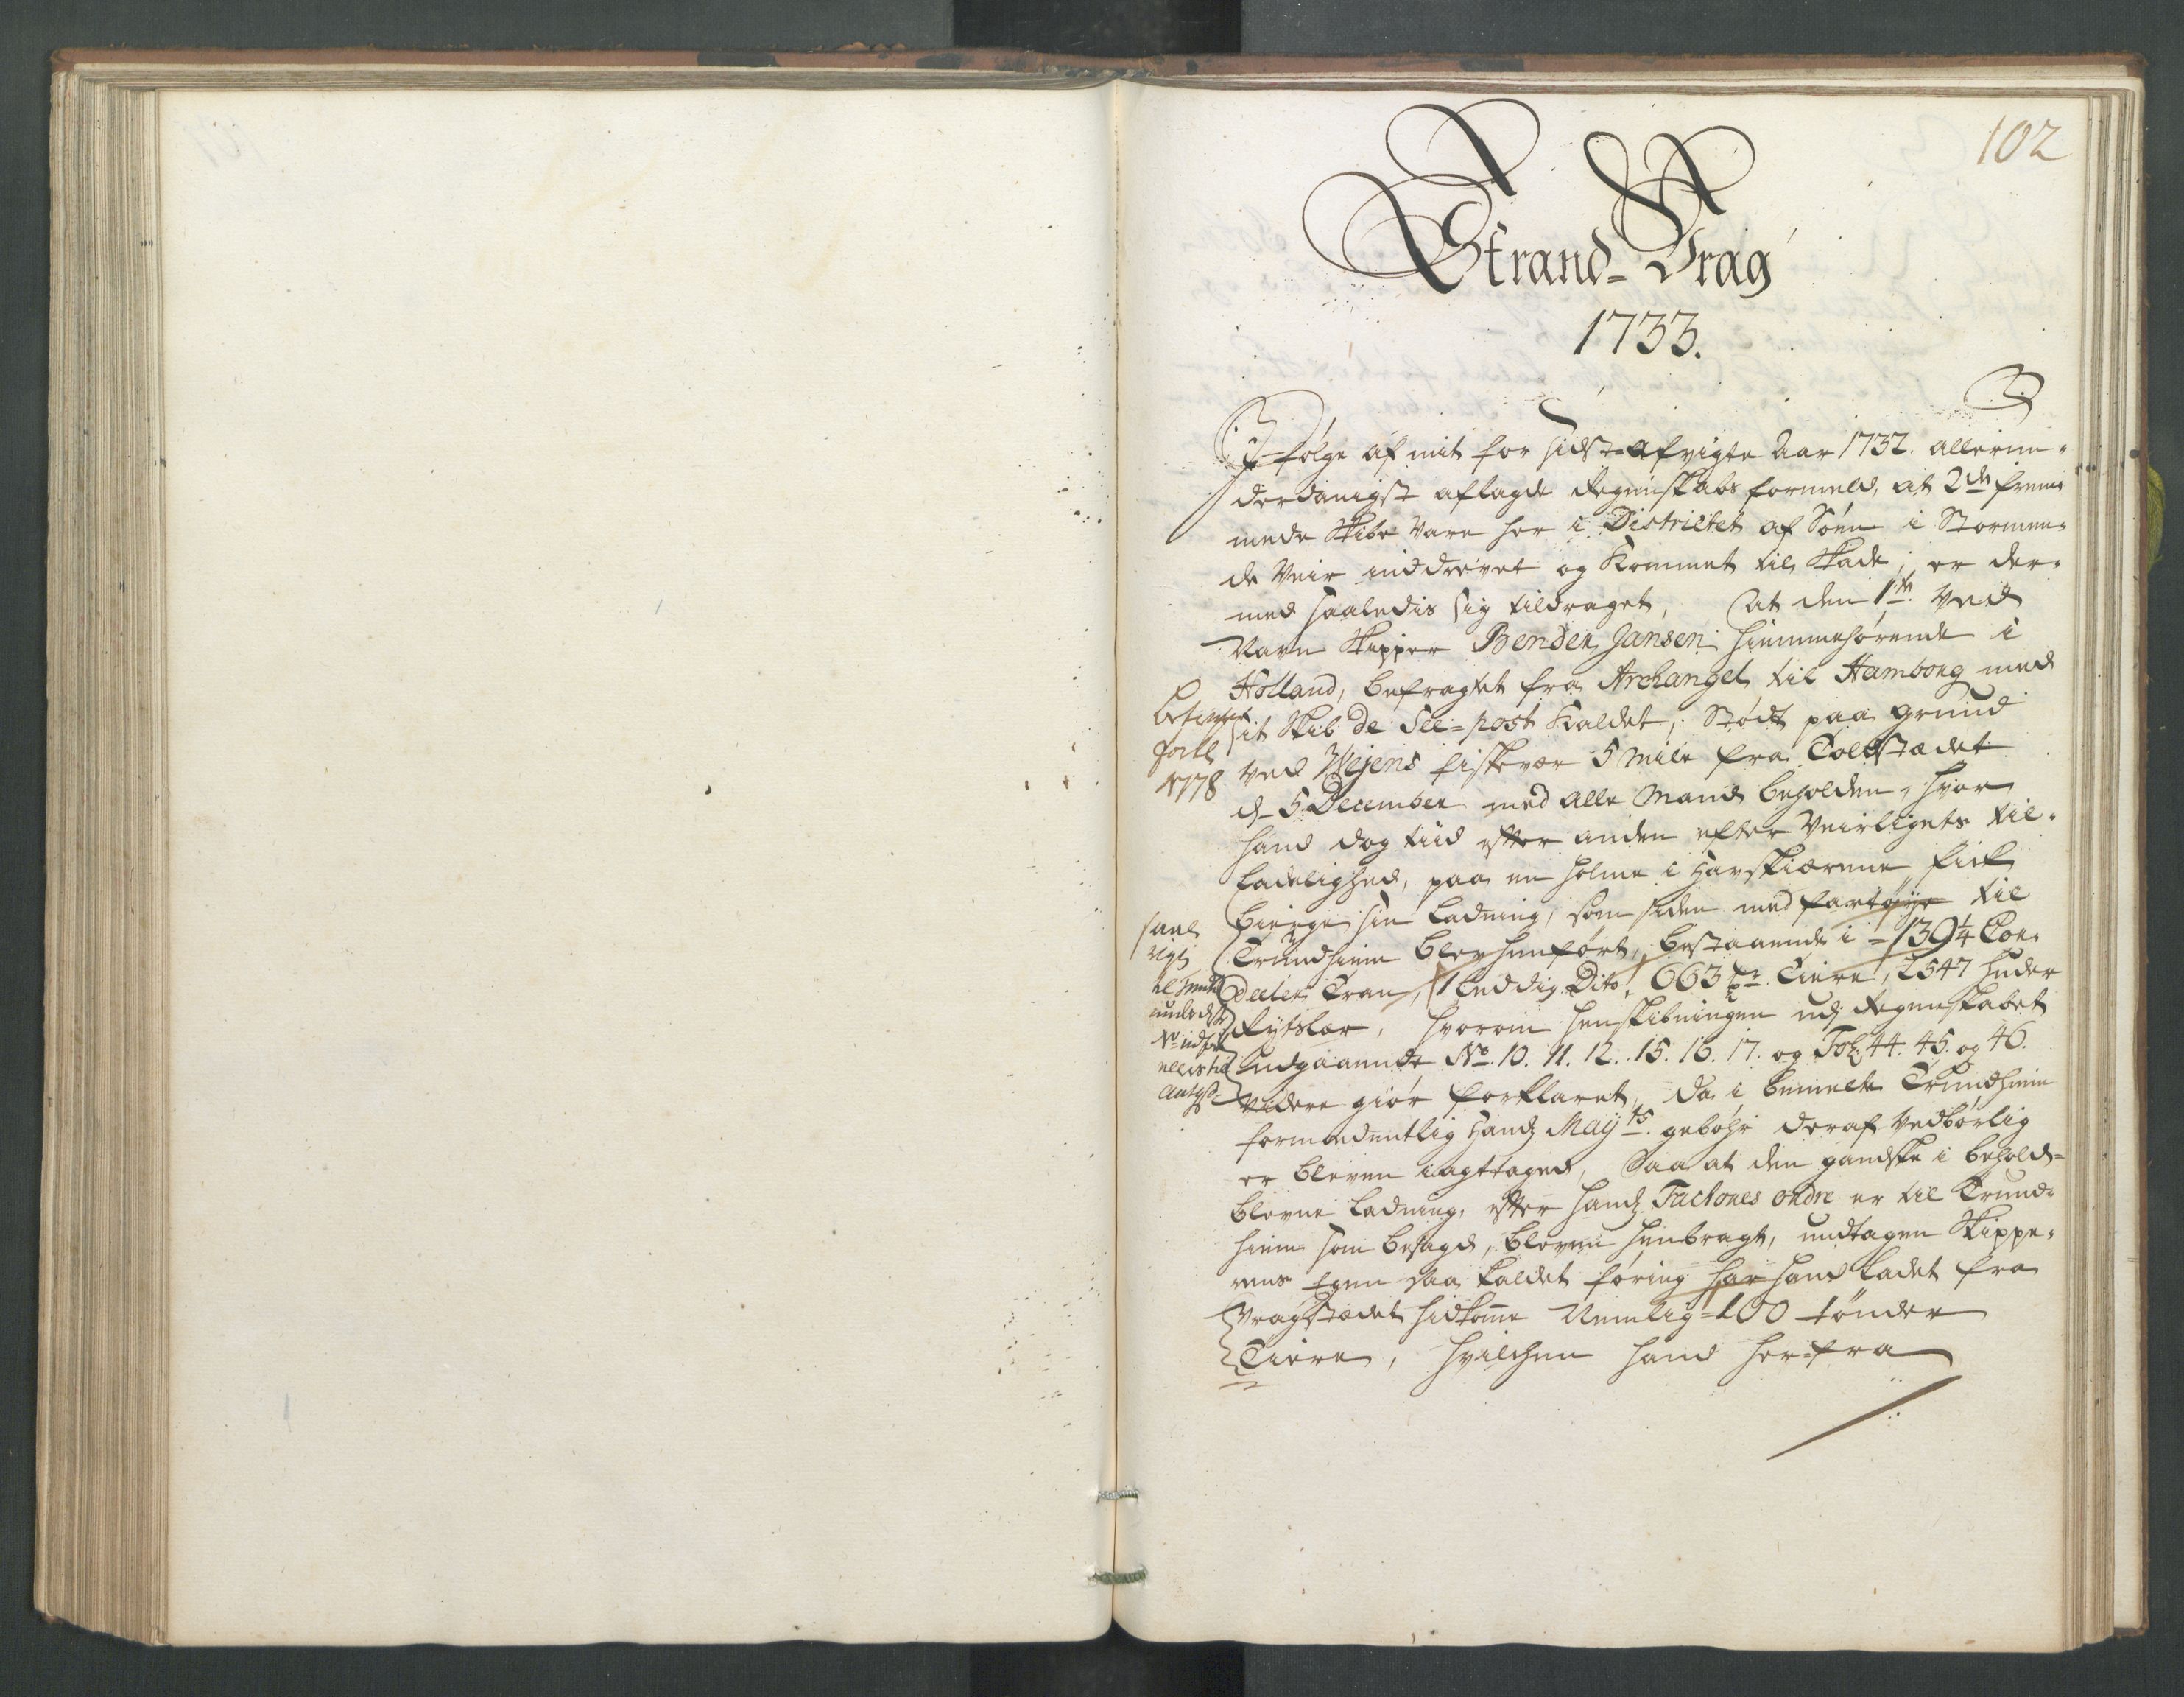 102
Strand-Vrag
1733.
I følge af mit for sidst afvigte Aar 1732. allerun-
derdanigst aflagde Regenskabs formeld, at 2de frem
mede Skibe vare her i Districtet af Söen i Stormen-
de Veir inddrevet og Kommet til Skade; er der-
med saaledis sig tildraget, at den 1te ved
Navn Skipper Bender Jansen hiemmehörende i
Holland, befragtet fra Archangel til Hamborg med
sit Skib de See-post Kaldet, Stödt paa grund
ved Wejens fiskevær 5 Mile fra Toldstædet
d. 5 December med alle Mand beholden, hvor
hand dog tiid efter anden efter Veirligets til-
ladelighed, paa en holme i Havskiærene fick
bierge sin Ladning, som siden med fartöye til
Trundhiem blev henført, bestaaende i - 139 1/4 Cor-
deeler Tran, 1 Leddig Dito, 663 tr. Tiere, 2547 huder
Rytslær, hvorom henskibningen udj Regenskabet
udgaaende No. 10. 11. 12. 15. 16. 17. og Fol: 44. 45. og 46.
videre giör forklaret, da i bemelte Trundhiem
formodentlig Hands Mayts. gebøhr deraf vedbörlig
er bleven iagttaged, Saa at den gandske i behold-
blevne Ladning, efter hands Factores ordre er til Trund-
hiem som besagd, bleven henbragt, undtagen Skippe-
rens Egen saa kaldet föring har hand ladet fra
Vragstædet hidkomme Nemlig = 100 tönder
Tiere, hvilchen hand her-fra
N 178